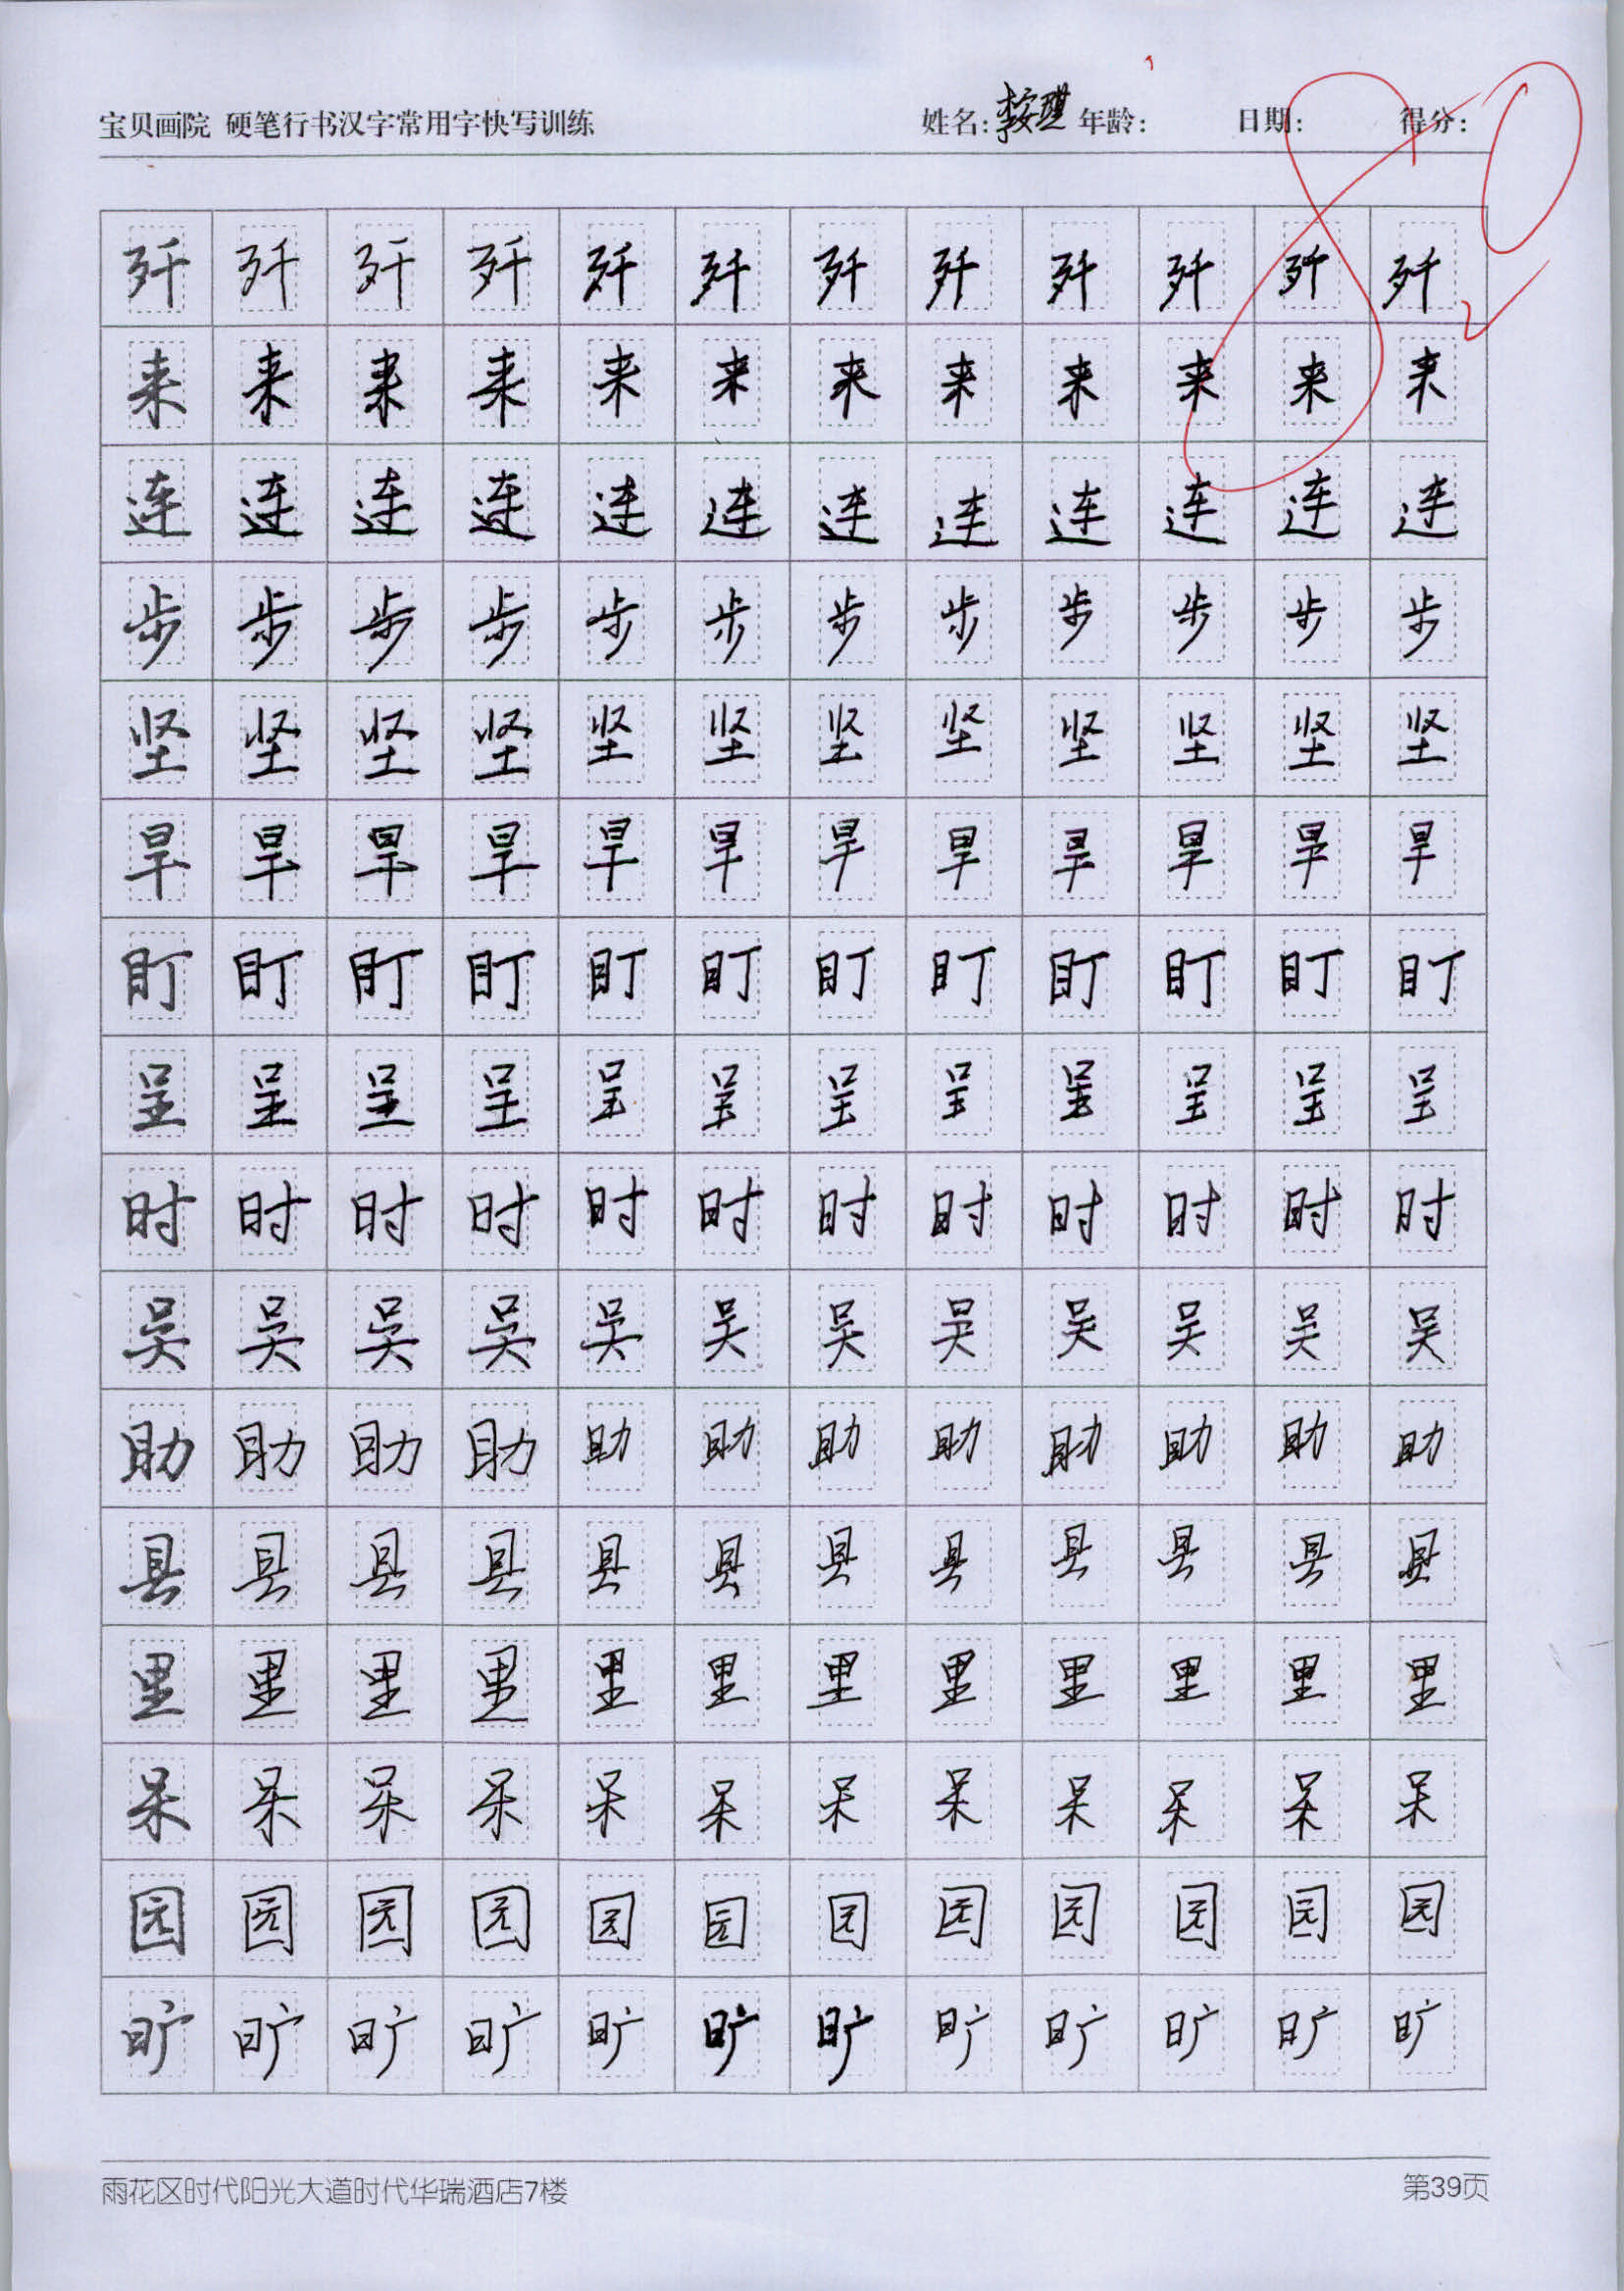 宝贝画院 硬笔行书汉字常用字快写训练 姓名:李安琪 年龄: 日期: 得分: 80
歼 歼 歼 歼 歼 歼 歼 歼 歼 歼 歼 歼
来 来 来 来 来 来 来 来 来 来 来 来
连 连 连 连 连 连 连 连 连 连 连 连
步 步 步 步 步 步 步 步 步 步 步 步
坚 坚 坚 坚 坚 坚 坚 坚 坚 坚 坚 坚
旱 旱 旱 旱 旱 旱 旱 旱 旱 旱 旱 旱
盯 盯 盯 盯 盯 盯 盯 盯 盯 盯 盯 盯
呈 呈 呈 呈 呈 呈 呈 呈 呈 呈 呈 呈
时 时 时 时 时 时 时 时 时 时 时 时
吴 吴 吴 吴 吴 吴 吴 吴 吴 吴 吴 吴
助 助 助 助 助 助 助 助 助 助 助 助
县 县 县 县 县 县 县 县 县 县 县 县
里 里 里 里 里 里 里 里 里 里 里 里
呆 呆 呆 呆 呆 呆 呆 呆 呆 呆 呆 呆
园 园 园 园 园 园 园 园 园 园 园 园
旷 旷 旷 旷 旷 旷 旷 旷 旷 旷 旷 旷
雨花区时代阳光大道时代华瑞酒店7楼 第39页